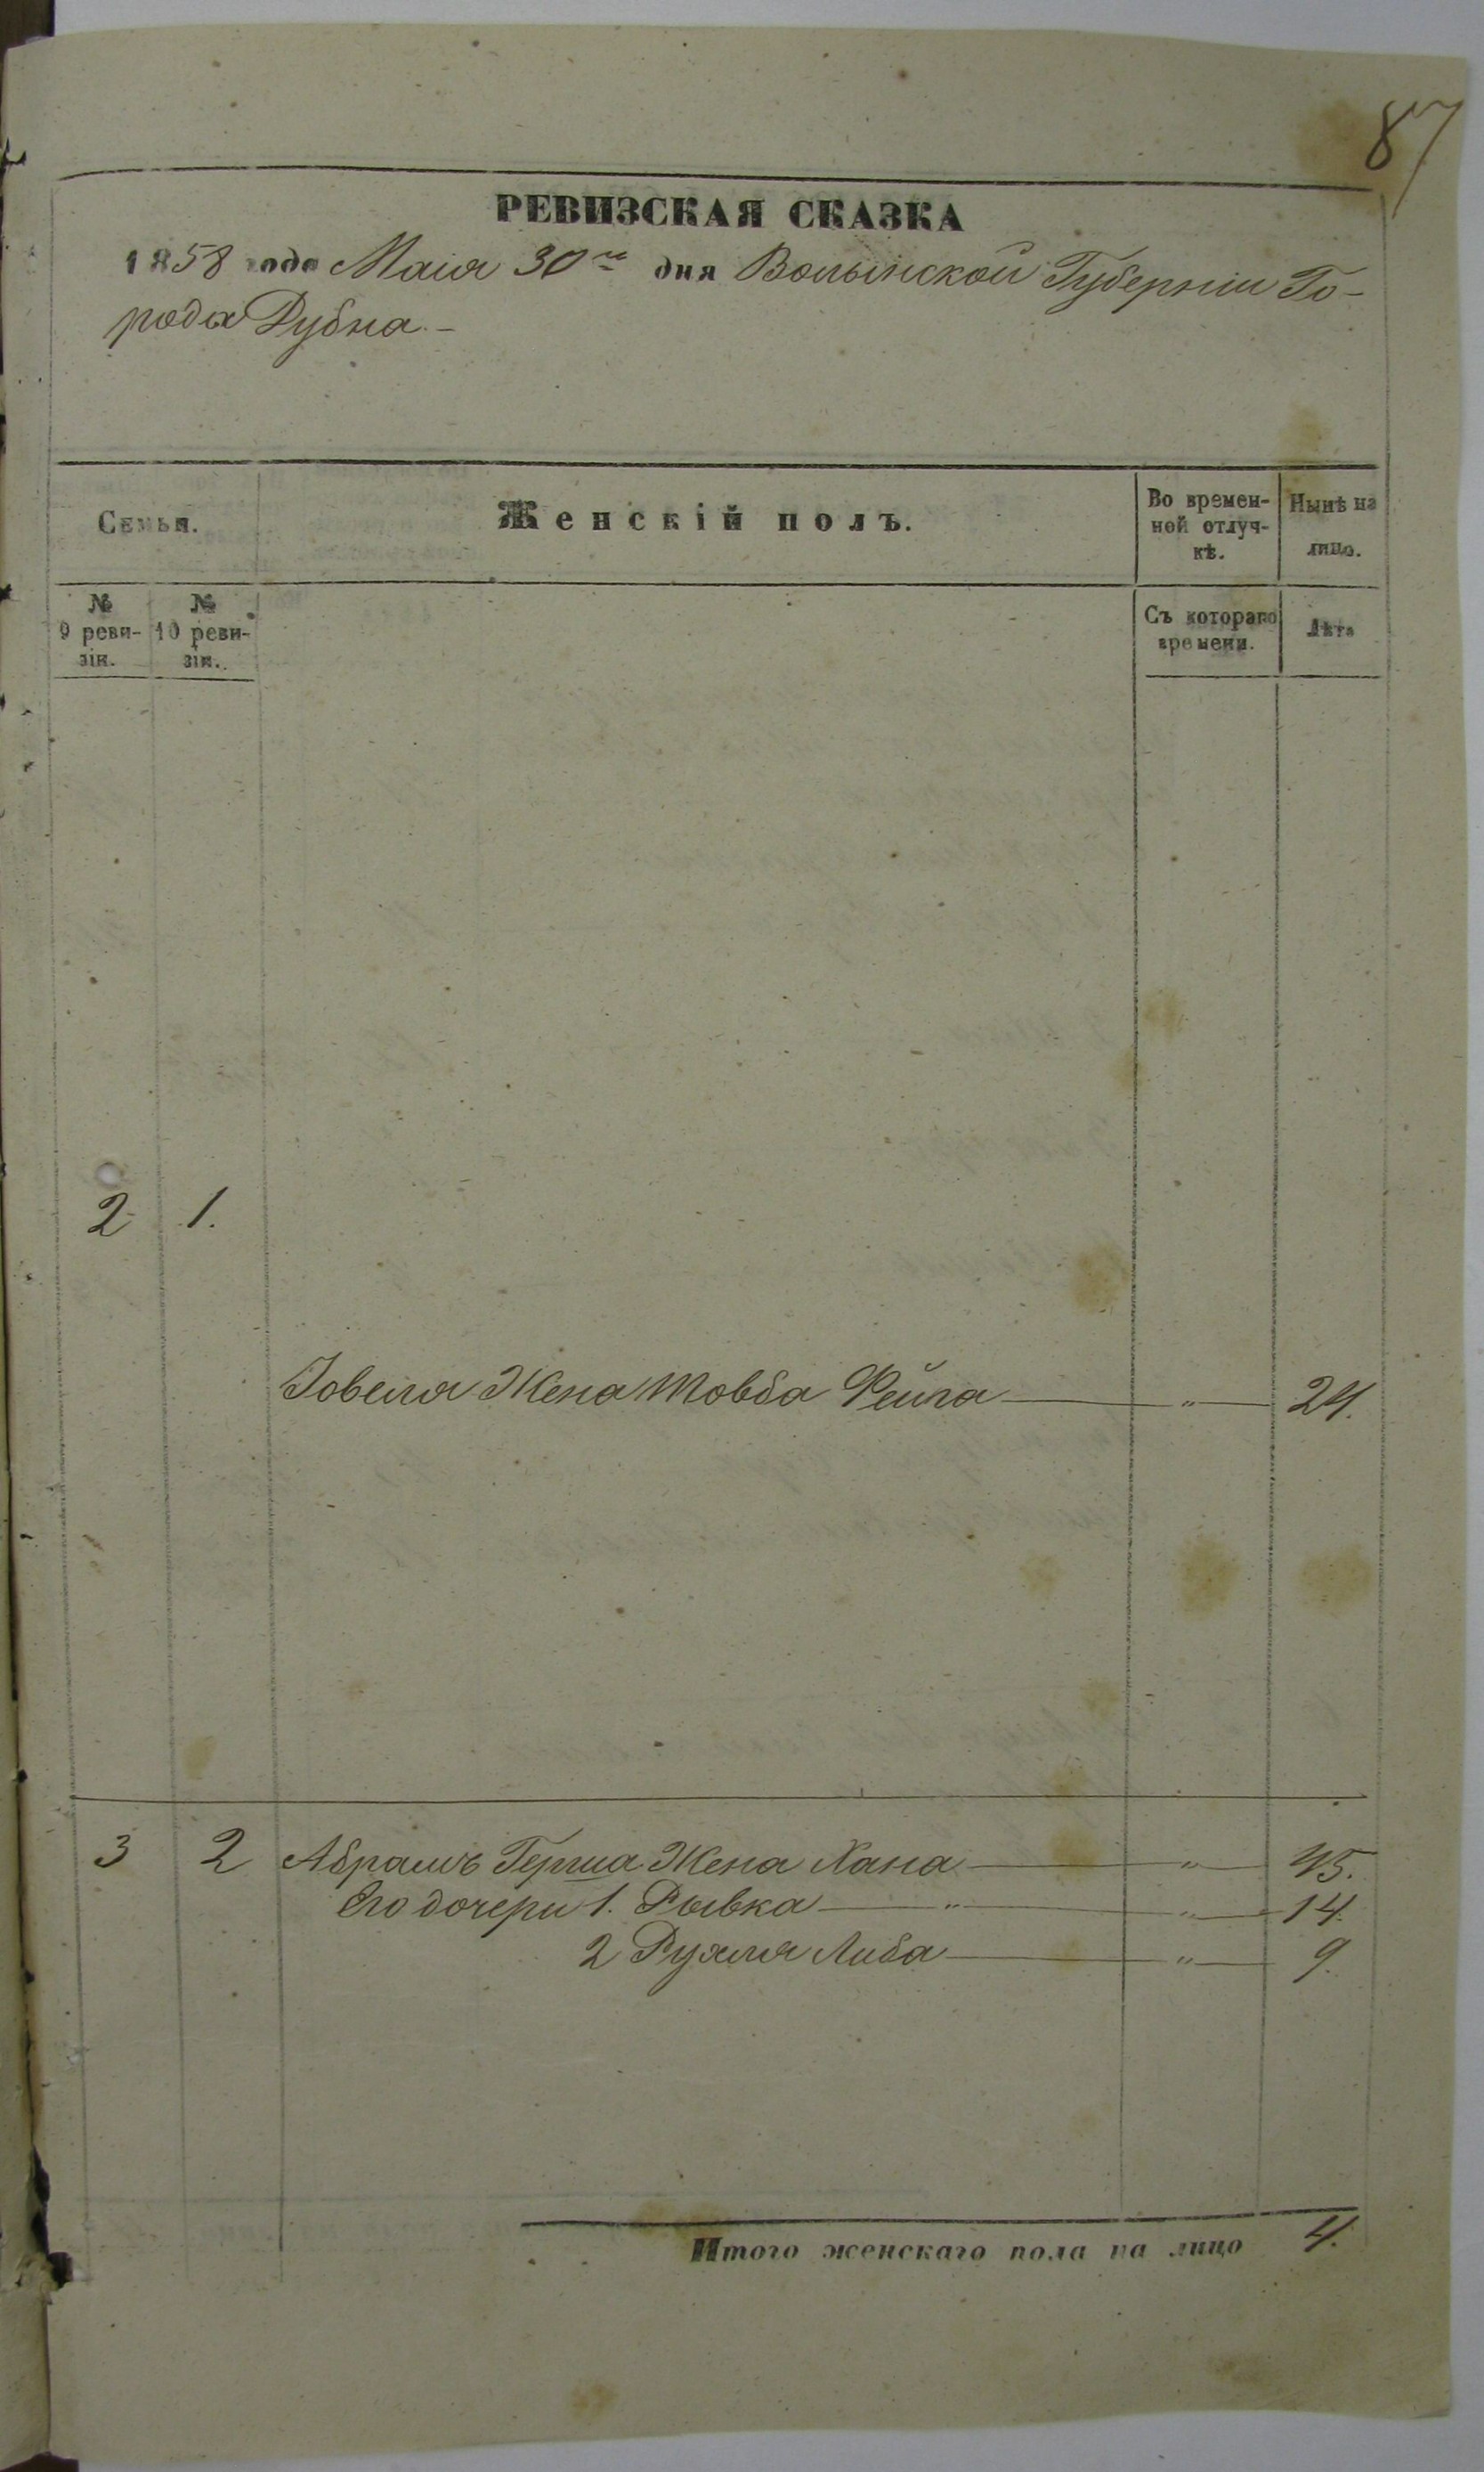 87
РЕВИЗСКАЯ СКАЗКА
1858 года Маія 30го дня Волынской Губерніи Го-
рода Дубна. –
Семья.
Женскій полъ.
Во времен-
ной отлуч-
кѣ.
Нынѣ на
лицо.
№
9 реви-
зіи.
№
10 реви-
зіи.
Съ котораго
времени.
Лѣта
2 1.
Іовеля Жена Товба Фейга — " — 24.
3 2 Абрамъ Герша Жена Хана — " — 45.
Его дочери 1. Рывка — " — " — 14.
2 Рухля Либа — " — 9.
Итого женскаго пола на лицо 4.